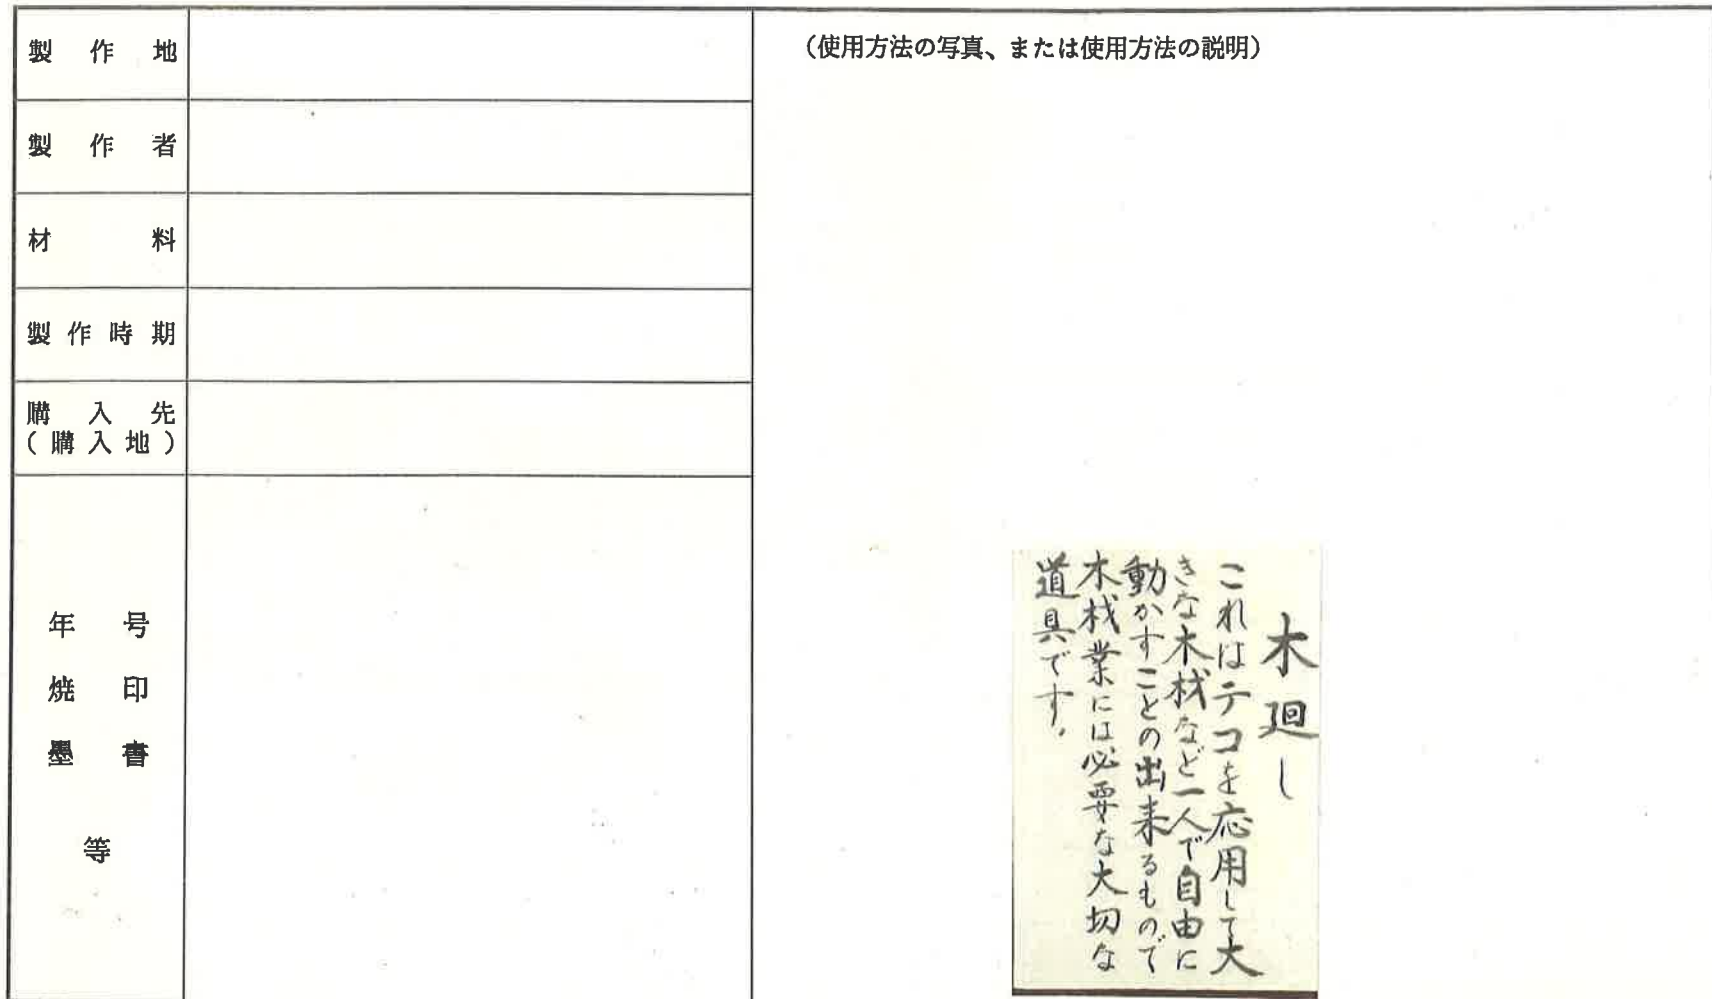 製作地
製作者
材料
製作時期
購入先
(購入地)
年号
焼印
墨書
等
(使用方法の写真、または使用方法の説明)
木廻し
これはテコを応用して大
きな木材など一人で自由に
動かすことの出来るもので
木材業には必要な大切な
道具です。